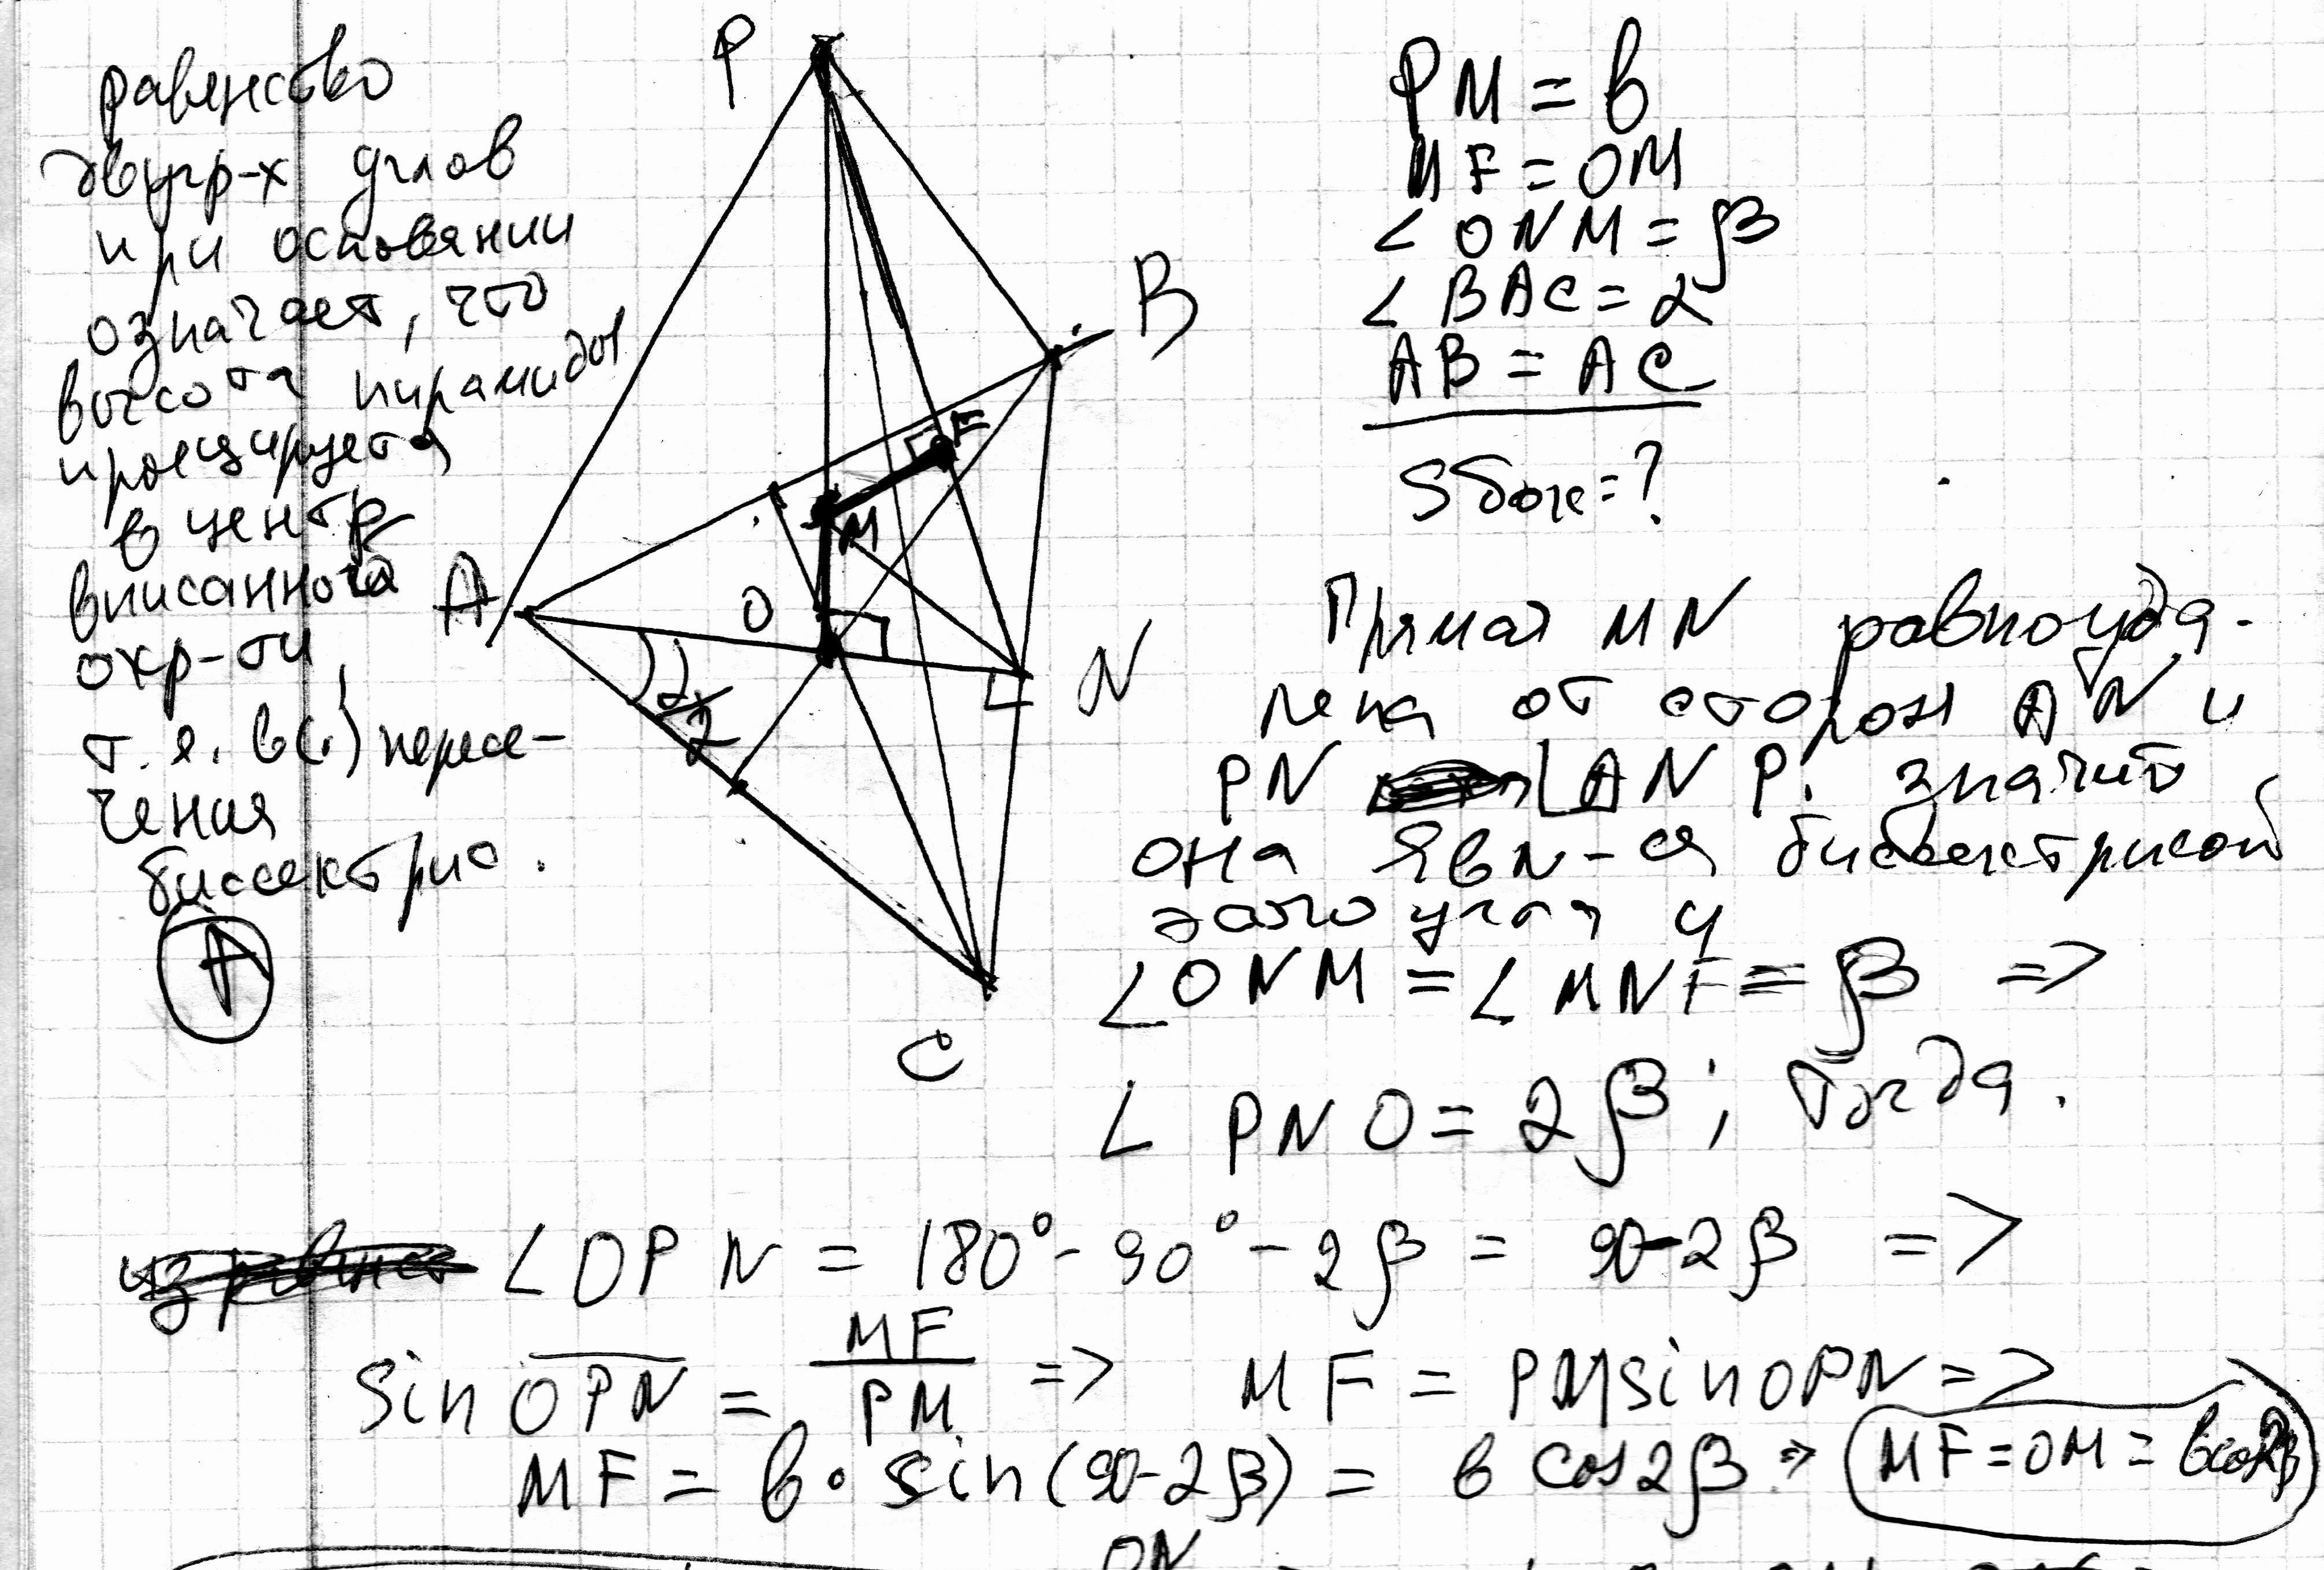 равенство
двугр-х углов
при основании
означает, что
высота пирамиды
проецируется
в центр
вписанной
окр-ти,
т.е. в(.) пересе-
чения
биссектрис.
P
B
F
M
A
O
N
α/2
C
PM = в
MF = OM
∠ ONM = β
∠ BAC = α
AB = AC
Sбок = ?
Прямая MN равноуда-
лена от сторон AN и
PN ∠ANP. значит
она явл-ся биссектрисой
этого угла и
∠ONM = ∠MNF = β =>
∠ PNO = 2β; тогда.
∠OPN = 180° - 90° - 2β = 90-2β =>
sin OPN = MF/PM => MF = PM sin OPN =>
MF = в · sin(90-2β) = в cos2β => MF = OM = в cos2β
ON